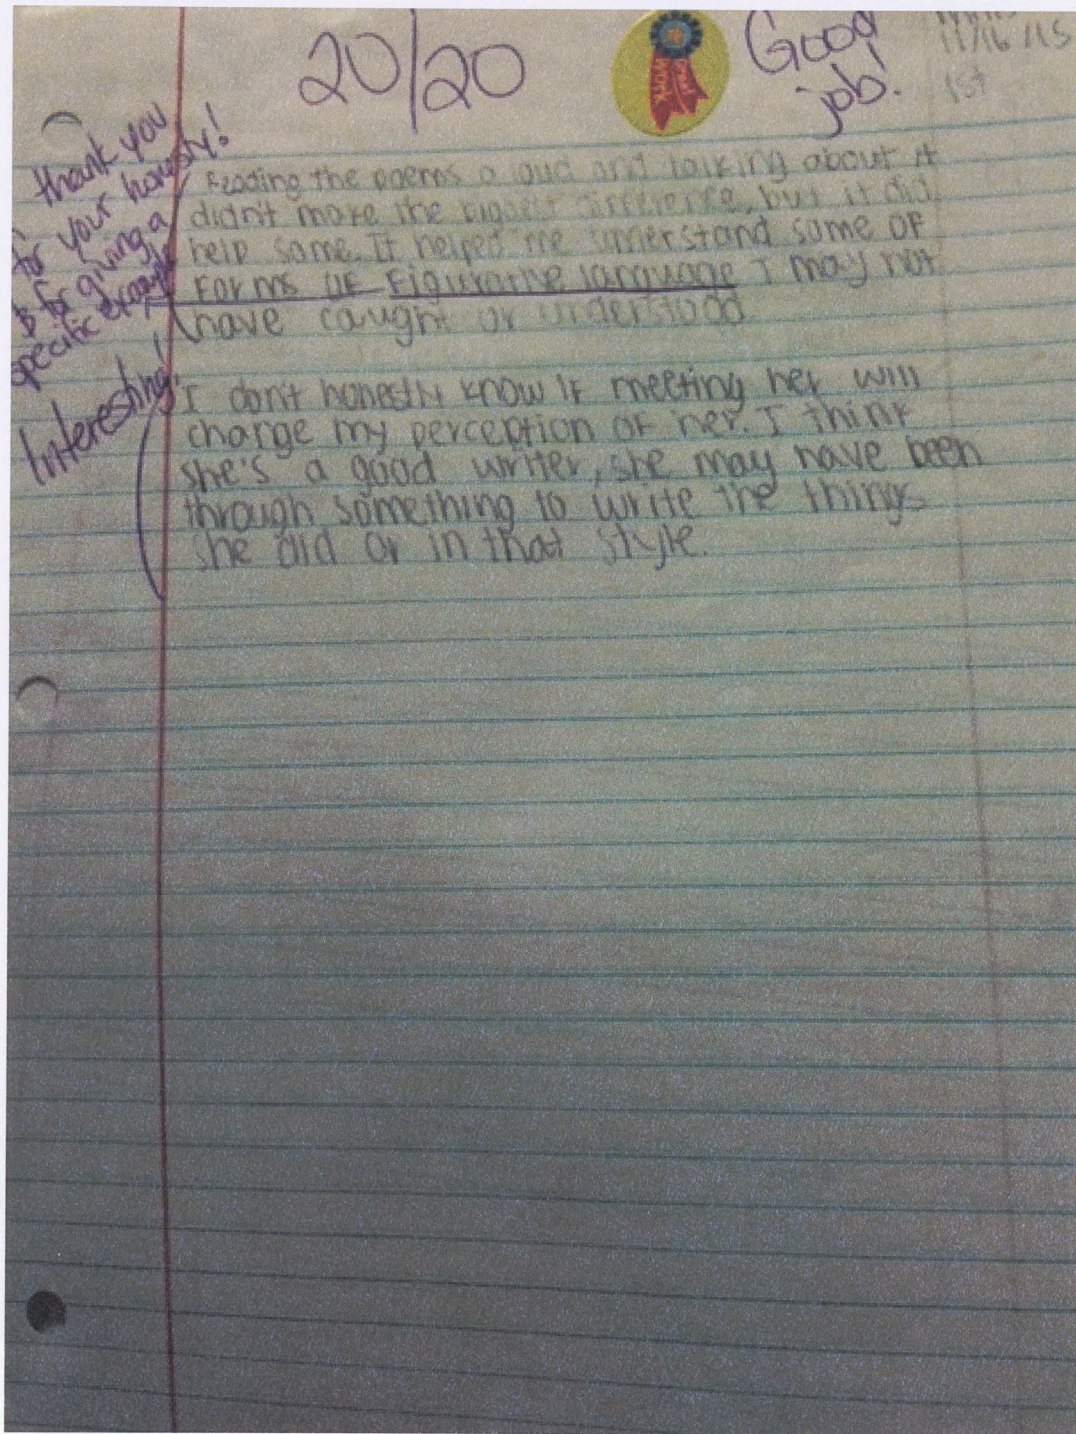 20/20
Good
job!
great
work
11/16/15
1st
thank you
for your honesty!
& for giving a
specific example
Interesting!
Reading the poems a loud and talking about it
didn't make the biggest difference, but it did
help some. It helped me understand some of
forms of figurative language I may not
have caught or understood
I don't honestly know if meeting her will
change my perception of her. I think
she's a good writer, she may have been
through something to write the things
she did or in that style.